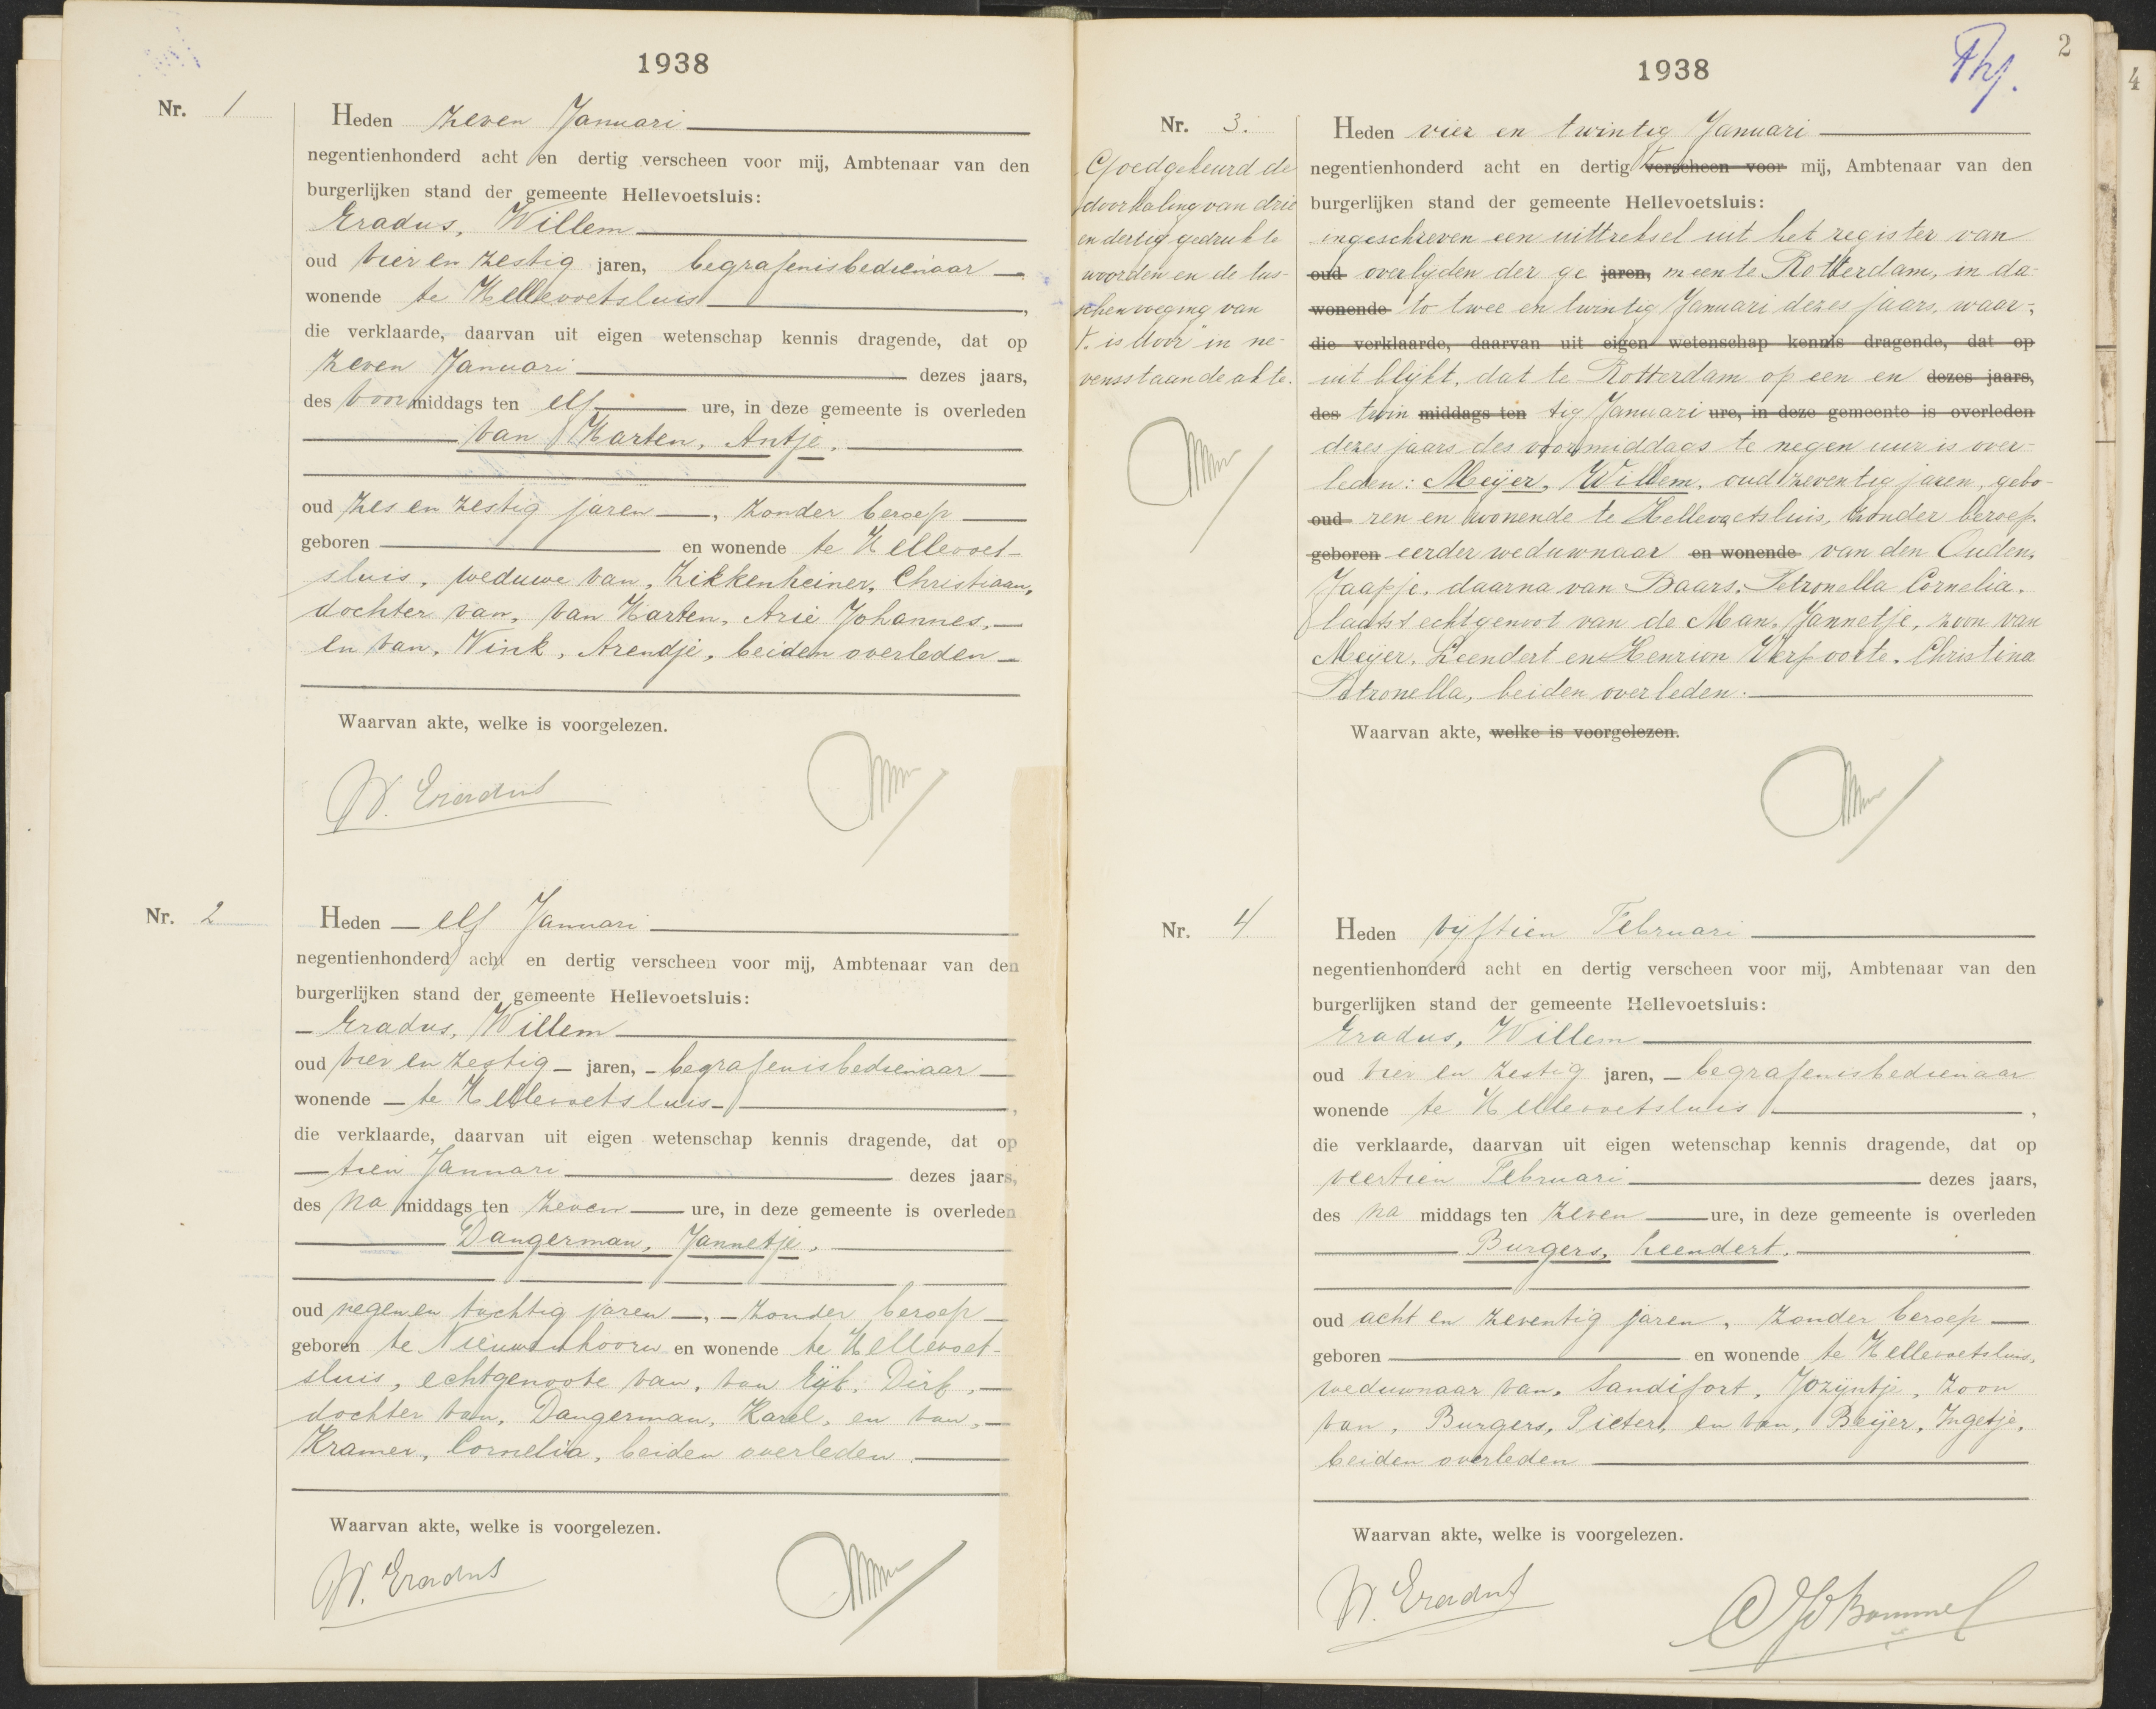 1938
Nr. 1
Heden zeven Januari
negentienhonderd acht en dertig verscheen voor mij, Ambtenaar van den
burgerlijken stand der gemeente Hellevoetsluis:
Eradus, Willem
oud vier en zestig jaren, begrafenisbedienaar
wonende te Hellevoetsluis,
die verklaarde, daarvan uit eigen wetenschap kennis dragende, dat op
zeven Januari dezes jaars,
des voormiddags ten elf ure, in deze gemeente is overleden
van Harten, Antje.
oud zes en zestig jaren, zonder beroep
geboren en wonende te Hellevoet-
sluis, weduwe van, Zikkenheiner, Christiaan,
dochter van, van Harten, Arie Johannes,
en van, Wink, Arendje, beiden overleden
Waarvan akte, welke is voorgelezen.
W. Eradus
Nr. 2
Heden elf Januari
negentienhonderd acht en dertig verscheen voor mij, Ambtenaar van den
burgerlijken stand der gemeente Hellevoetsluis:
Eradus, Willem
oud vier en zestig jaren, begrafenisbedienaar
wonende te Hellevoetsluis,
die verklaarde, daarvan uit eigen wetenschap kennis dragende, dat op
tien Januari dezes jaars,
des na middags ten zeven ure, in deze gemeente is overleden
Dangerman, Jannetje,
oud negen en tachtig jaren, zonder beroep
geboren te Nieuwenhoorn en wonende te Hellevoet-
sluis, echtgenoote van, van Eijk, Dirk,
dochter van, Dangerman, Karel, en van,
Kramer, Cornelia, beiden overleden
Waarvan akte, welke is voorgelezen.
W. Eradus
2
4
1938
Nr. 3.
Goedgekeurd de
doorhaling van drie
en dertig gedrukte
woorden en de tus-
schenvoeging van
"is door" in ne-
vensstaande akte.
Heden vier en twintig Januari
negentienhonderd acht en dertig verscheen voor mij, Ambtenaar van den
burgerlijken stand der gemeente Hellevoetsluis:
ingeschreven een uittreksel uit het register van
oud overlyden der ge jaren, meente Rotterdam, in da-
wonende to twee en twintig Januari dezes jaars, waar-
die verklaarde, daarvan uit eigen wetenschap kennis dragende, dat op
uit blijkt, dat te Rotterdam op een en dezes jaars,
des twin middags ten tig Januari ure, in deze gemeente is overleden
dezes jaars des voormiddags te negen uur is over-
leden: Meijer, Willem, oud zeventig jaren, gebo-
oud ren en wonende te Hellevoetsluis, zonder beroep.
geboren eerder weduwnaar en wonende van den Ouden,
Jaapje, daarna van Baars, Petronella Cornelia,
laatst echtgenoot van de Man, Jannetje, zoon van
Meijer, Leendert en Henrion Verpoorte, Christina
Petronella, beiden overleden.
Waarvan akte, welke is voorgelezen.
Nr. 4
Heden vyftien Februari
negentienhonderd acht en dertig verscheen voor mij, Ambtenaar van den
burgerlijken stand der gemeente Hellevoetsluis:
Eradus, Willem
oud vier en zestig jaren, begrafenisbedienaar
wonende te Hellevoetsluis,
die verklaarde, daarvan uit eigen wetenschap kennis dragende, dat op
veertien Februari dezes jaars,
des na middags ten zeven ure, in deze gemeente is overleden
Burgers, Leendert.
oud acht en zeventig jaren, zonder beroep
geboren en wonende te Hellevoetsluis,
weduwnaar van, Sandifort, Jozijntje, zoon
van, Burgers, Pieter, en van, Beijer, Ingetje,
beiden overleden
Waarvan akte, welke is voorgelezen.
W. Eradus